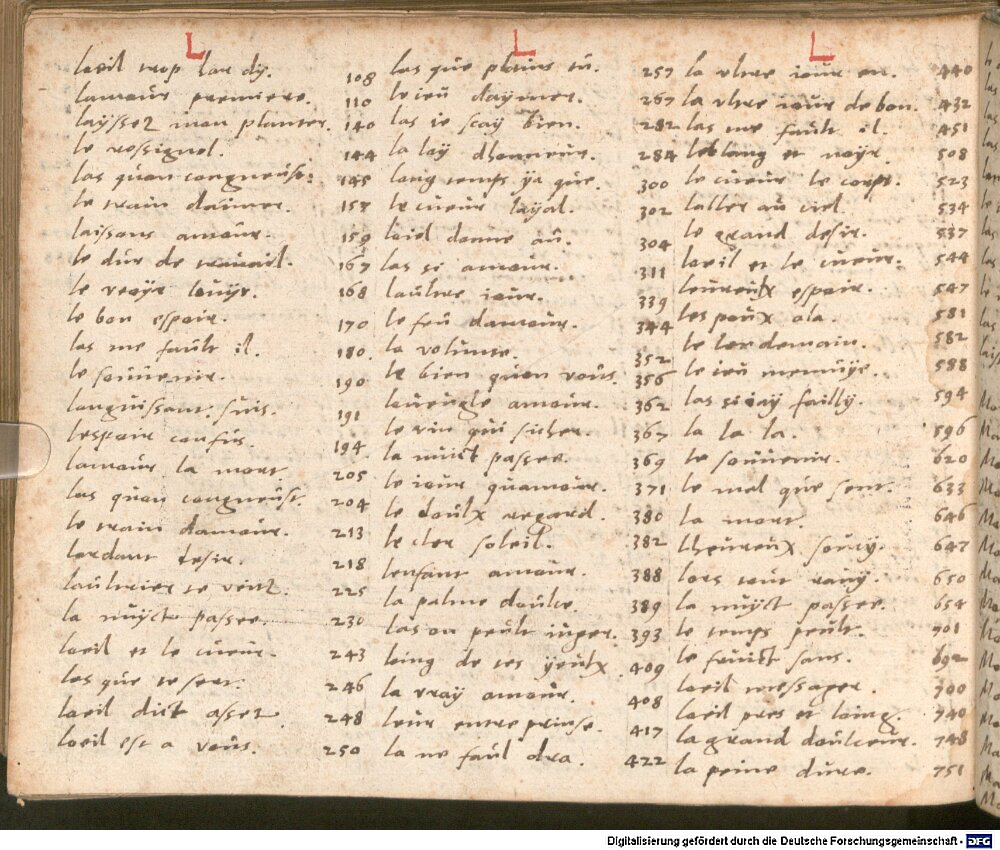 L
loeil trop lar dy. 108
lamour premiere. 110
layssez mon planter. 140
le rossignol. 144
las quon congneust: 145
le train daimer. 157
laissons amour. 159
le dur de travail. 167
le veoyr louyr. 168
le bon espoir. 170
las me fault il. 180.
le souvenir. 190
languissant. suis. 191
lespoir confus. 194.
lamour la mort 205
las quon congneust. 204
le train damour. 213
lardant desir. 218
laultrier se vint. 225
la nuyct passee. 230
loeil et le cueur. 243
las que te sert. 246
loeil dict assez. 248
loeil est a vous. 250
L
las que plains tu. 257
le ieu daymer. 267
las ie scay bien. 282
la loy dhonneur. 284
long temps ya que. 300
le cueur loyal. 302
loeil donne au. 304
las si amour. 311
laultre iour. 339
le feu damour. 344
la volunte. 352
le bien quon vous. 356
laveugle amour. 362
le vin qui si cher. 367
la nuict passee. 369
le iour quamour. 371
le doulx regard. 380
le cler soleil. 382
lenfant amour. 388
la palme doulce. 389
las on peult iuger. 393
loing de tes yeulx 409
la vray amour. 408
leur entreprinse. 417
la ne faul dra. 422
L
la vltre iour en. 440
la vltre iour de bon. 432
las me fault il. 451
leblanc et noyr. 508
le cueur le corps. 523
laller au ciel. 534
le grand desir. 537
loeil et le cueur: 544
leureulx espoir. 547
les poux ola. 581
le lendemain. 582
le ieu mennuye. 588
las si iay failly. 594
la la la. 596
le souvenir. 620
le mal que sent. 633
la mort. 646
lheureux soucy. 647
lors tout ravy. 650
la nuyct passee. 654
le temps peult. 701
le fruict sans. 692
loeil messager. 700
loeil pres et loing. 740
la grand doulceur. 748
la peine dure. 751
Digitalisierung gefördert durch die Deutsche Forschungsgemeinschaft - DFG